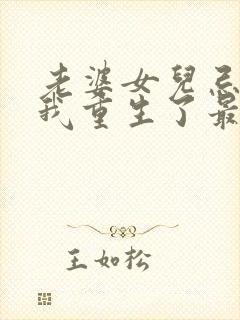 老婆女兒忌
我重生了最
王如松